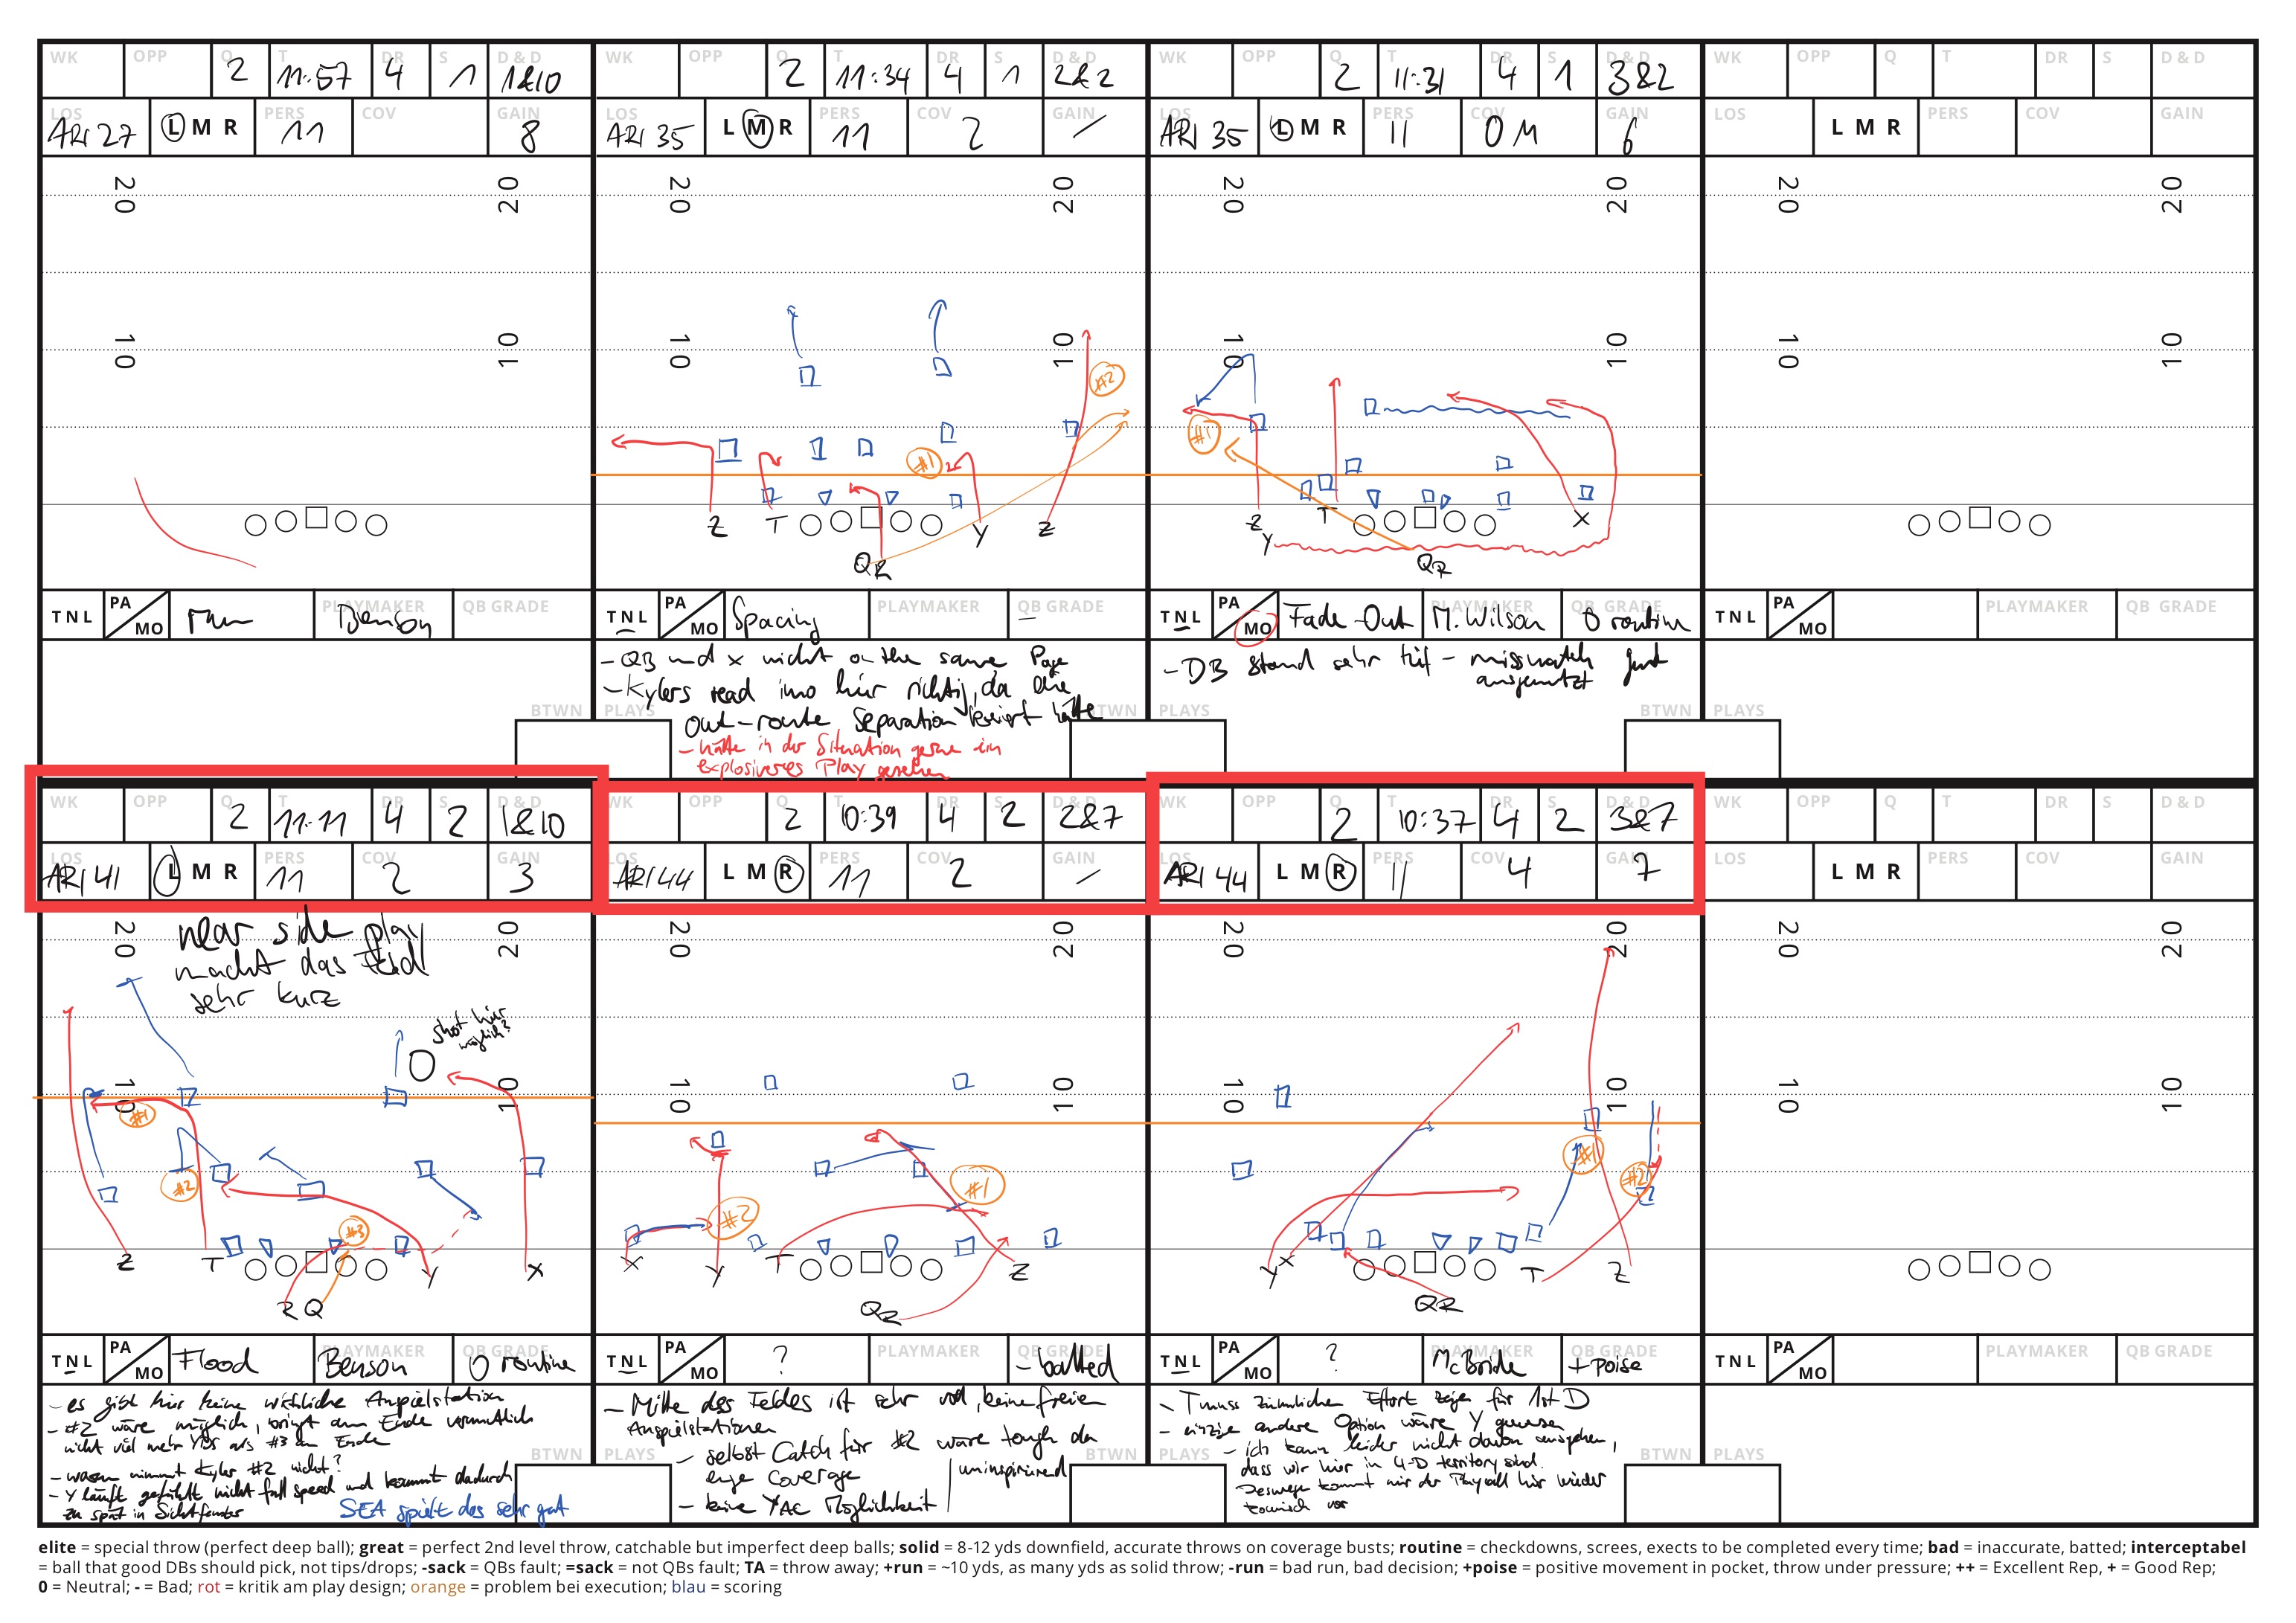 WK OPP Q 2 T 11:57 DR 4 S 1 D & D 1&10
LOS ARI 27 L M R PERS 11 COV GAIN 8
20 20
10 10
T N L PA MO run PLAYMAKER Benson QB GRADE
BTWN PLAYS
WK OPP Q 2 T 11:34 DR 4 S 1 D & D 2&2
LOS ARI 35 L M R PERS 11 COV 2 GAIN /
20 20
10 10
#2
#1
Z T Y Z
QR
T N L PA MO Spacing PLAYMAKER QB GRADE –
- QB und x nicht on the same Page
- Kylers read imo hier richtig, da die
out-route Separation kreiert hätte
- hätte in der Situation gerne ein
explosiveres Play gesehen
BTWN PLAYS
WK OPP Q 2 T 11:31 DR 4 S 1 D & D 3&2
LOS ARI 35 L M R PERS 11 COV 0 M GAIN 6
20 20
10 10
#1
Z T X
Y
QR
T N L PA MO Fade-Out PLAYMAKER M. Wilson QB GRADE 0 routine
- DB stand sehr tief - missmatch gut
ausgenutzt
BTWN PLAYS
WK OPP Q T DR S D & D
LOS L M R PERS COV GAIN
20 20
10 10
T N L PA MO PLAYMAKER QB GRADE
WK OPP Q 2 T 11:11 DR 4 S 2 D & D 1&10
LOS ARI 41 L M R PERS 11 COV 2 GAIN 3
20 20
near side play
macht das Feld
sehr kurz
shot hier
möglich?
10 10
#1
#2
#3
Z T Y X
R Q
T N L PA MO Flood PLAYMAKER Benson QB GRADE 0 routine
- es gibt hier keine wirkliche Anspielstation
- #2 wäre möglich, bringt am Ende vermutlich
nicht viel mehr YDs als #3 am Ende
- warum nimmt Kyler #2 nicht?
- Y läuft gefühlt nicht full speed und kommt dadurch
zu spät in Sichtfenster
SEA spielt das sehr gut
BTWN PLAYS
WK OPP Q 2 T 10:39 DR 4 S 2 D & D 2&7
LOS ARI 44 L M R PERS 11 COV 2 GAIN /
20 20
10 10
#1
#2
X Y T Z
QR
T N L PA MO ? PLAYMAKER QB GRADE - batted
- Mitte des Feldes ist sehr voll, keine freien
Anspielstationen
- selbst Catch für #2 wäre tough da
enge Coverage
uninspiriered
- keine YAC Möglichkeit
BTWN PLAYS
WK OPP Q 2 T 10:37 DR 4 S 2 D & D 3&7
LOS ARI 44 L M R PERS 11 COV 4 GAIN 7
20 20
10 10
#1
#2
Y X T Z
QR
T N L PA MO ? PLAYMAKER McBride QB GRADE + poise
- T muss ziemlichen Effort zeigen für 1st D
- einzie andere Option wäre Y gewesen
- ich kann leider nicht davon ausgehen,
dass wir hier in 4-D territory sind.
Deswegen kommt mir der Playcall hier wieder
komisch vor
BTWN PLAYS
WK OPP Q T DR S D & D
LOS L M R PERS COV GAIN
20 20
10 10
T N L PA MO PLAYMAKER QB GRADE
elite = special throw (perfect deep ball); great = perfect 2nd level throw, catchable but imperfect deep balls; solid = 8-12 yds downfield, accurate throws on coverage busts; routine = checkdowns, screes, exects to be completed every time; bad = inaccurate, batted; interceptabel
= ball that good DBs should pick, not tips/drops; -sack = QBs fault; =sack = not QBs fault; TA = throw away; +run = ~10 yds, as many yds as solid throw; -run = bad run, bad decision; +poise = positive movement in pocket, throw under pressure; ++ = Excellent Rep, + = Good Rep;
0 = Neutral; - = Bad; rot = kritik am play design; orange = problem bei execution; blau = scoring